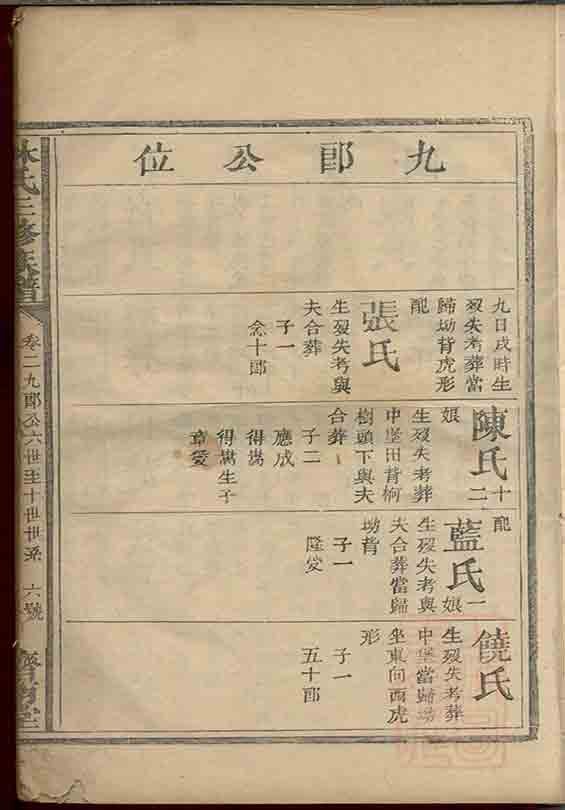 九郎公位
九日戌時生
歿失考葬當
歸坳背虎形
配
張氏
生歿失考與
夫合葬
子一
念十郎
陳氏十二
娘
生歿失考葬
中堡田背柯
樹頭下與夫
合葬
子二
應成
得嵩
得嵩生子
章愛
配
藍氏一娘
生歿失考與
夫合葬當歸
坳背
子一
隆受
饒氏
生歿失考葬
中堡當歸坳
坐東向西虎
形
子一
五十郎
林氏三修族譜
卷二九郎公六世至十世世系
六號